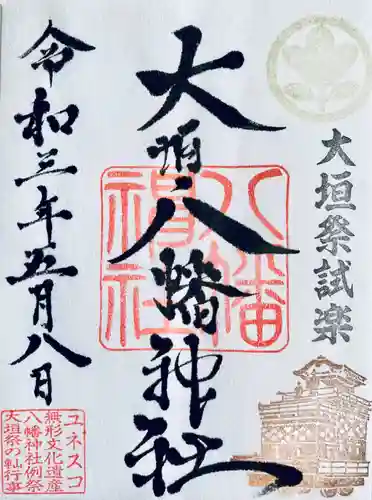 大垣祭試楽
大垣八幡神社
八幡神社
令和三年五月八日
ユネスコ
無形文化遺産
八幡神社例祭
大垣祭の軕行事